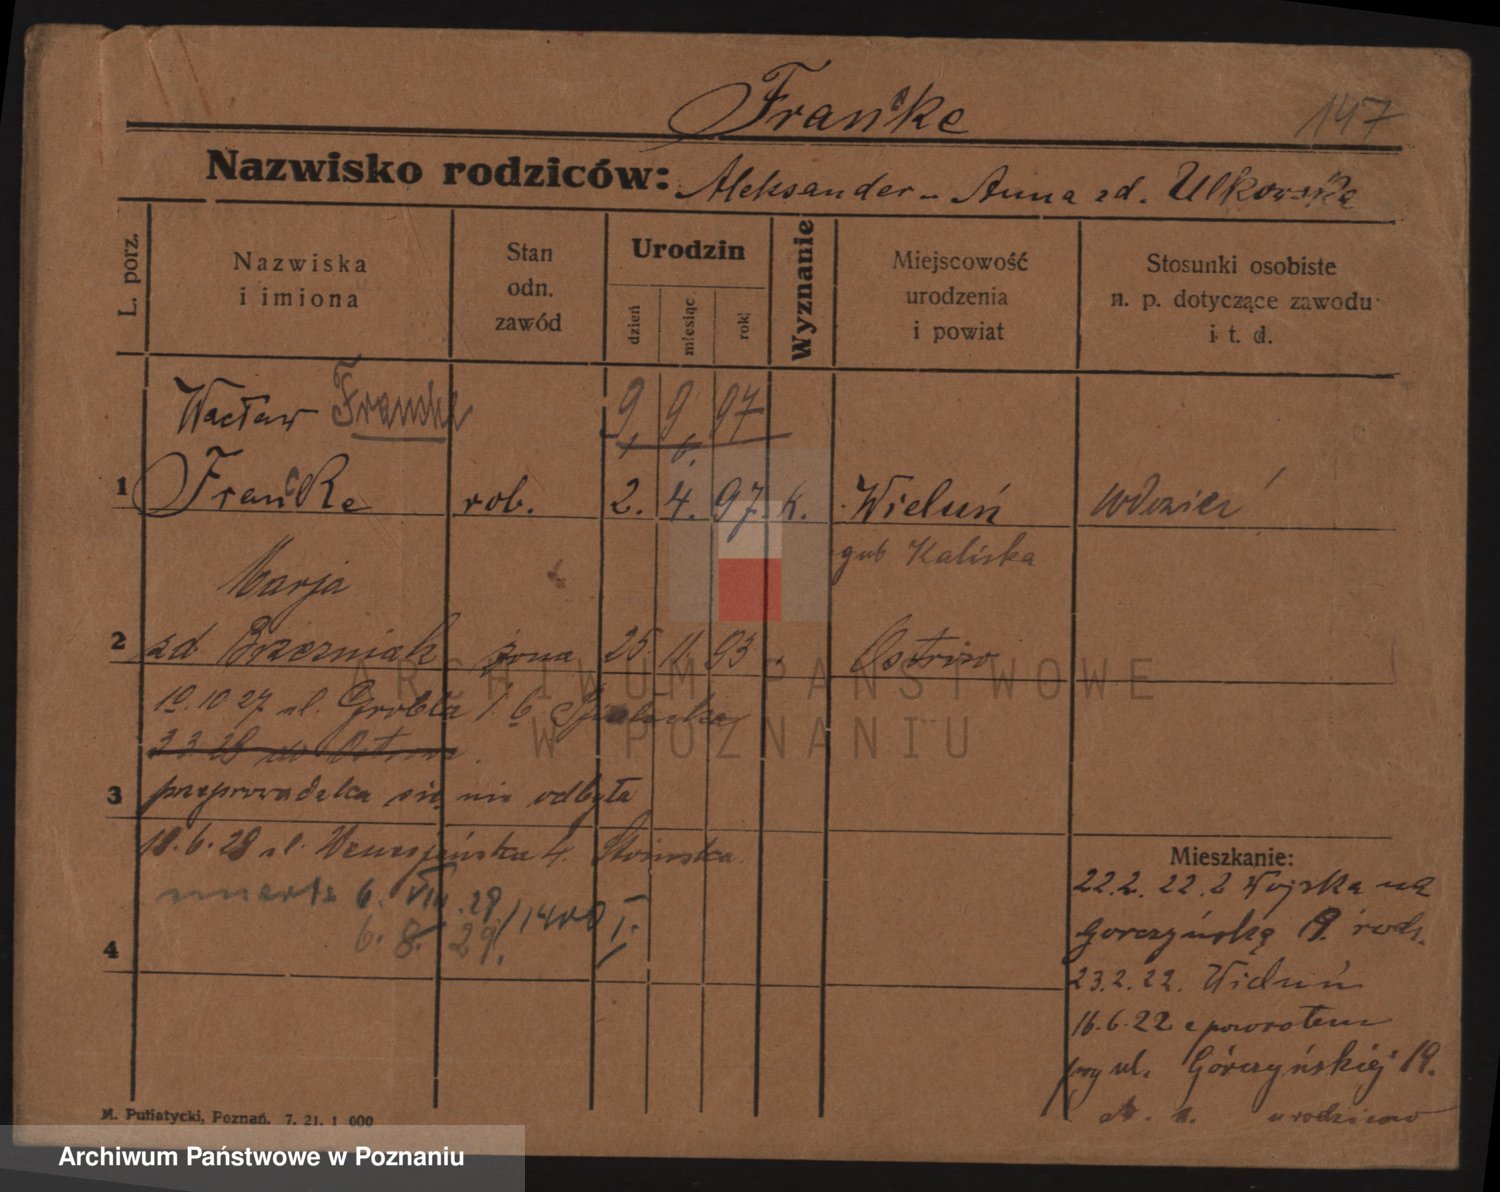 Francke
147
Nazwisko rodziców: Aleksander u Anna zd. Ulkowska
L. porz.
Nazwiska i imiona
Stan odn. zawód
Urodzin
dzień
miesiąc
rok
Wyznanie
Miejscowość urodzenia i powiat
Stosunki osobiste n. p. dotyczące zawodu i t. d.
Wacław Francke 9 9 97
1 Francke rob. 2. 4. 97. k. Wieluń
gub Kaliska
Marja
2 zd. żona 25. 11. 93
19.10.27 ul. Grobla
3.3.28 do
3 przeprowadzka się nie odbyła
18.6.28 ul. Wenecjańska 4.
umarł 6. VIII. 29.
6. 8. 29.
4
Mieszkanie:
22.2.22 z Wojska na
Gorczyńską 19.
23.2.22. Wieluń
16.6.22 z powrotem
przy ul. Górczyńskiej 19.
urodzono
M. Putiatycki, Poznań. 7. 21. 1 000
ARCHIWUM PAŃSTWOWE
W POZNANIU
Archiwum Państwowe w Poznaniu